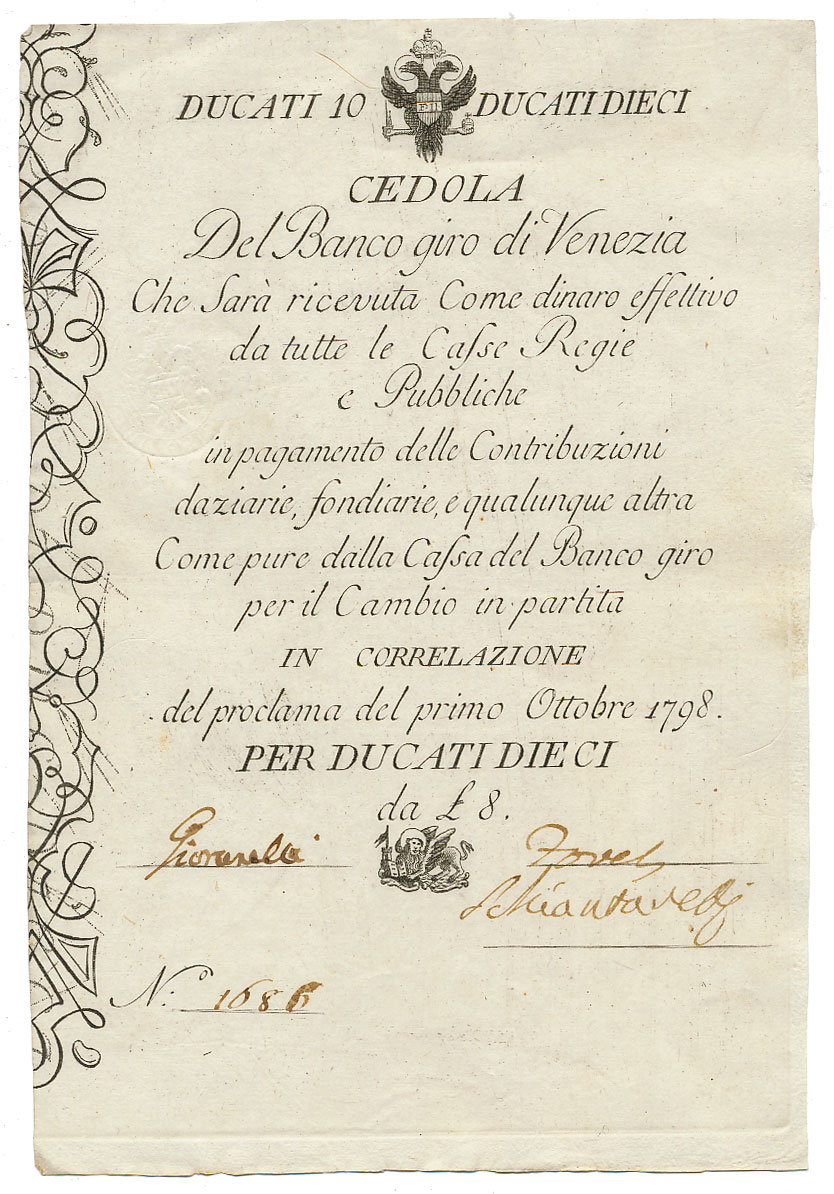 DUCATI 10 DUCATI DIECI
F II
CEDOLA
Del Banco giro di Venezia
Che Sarà ricevuta Come dinaro effettivo
da tutte le Caſse Regie
e Pubbliche
in pagamento delle Contribuzioni
daziarie, fondiarie, e qualunque altra
Come pure dalla Caſsa del Banco giro
per il Cambio in partita
IN CORRELAZIONE
del proclama del primo Ottobre 1798.
PER DUCATI DIECI
da £ 8.
N.º 1686